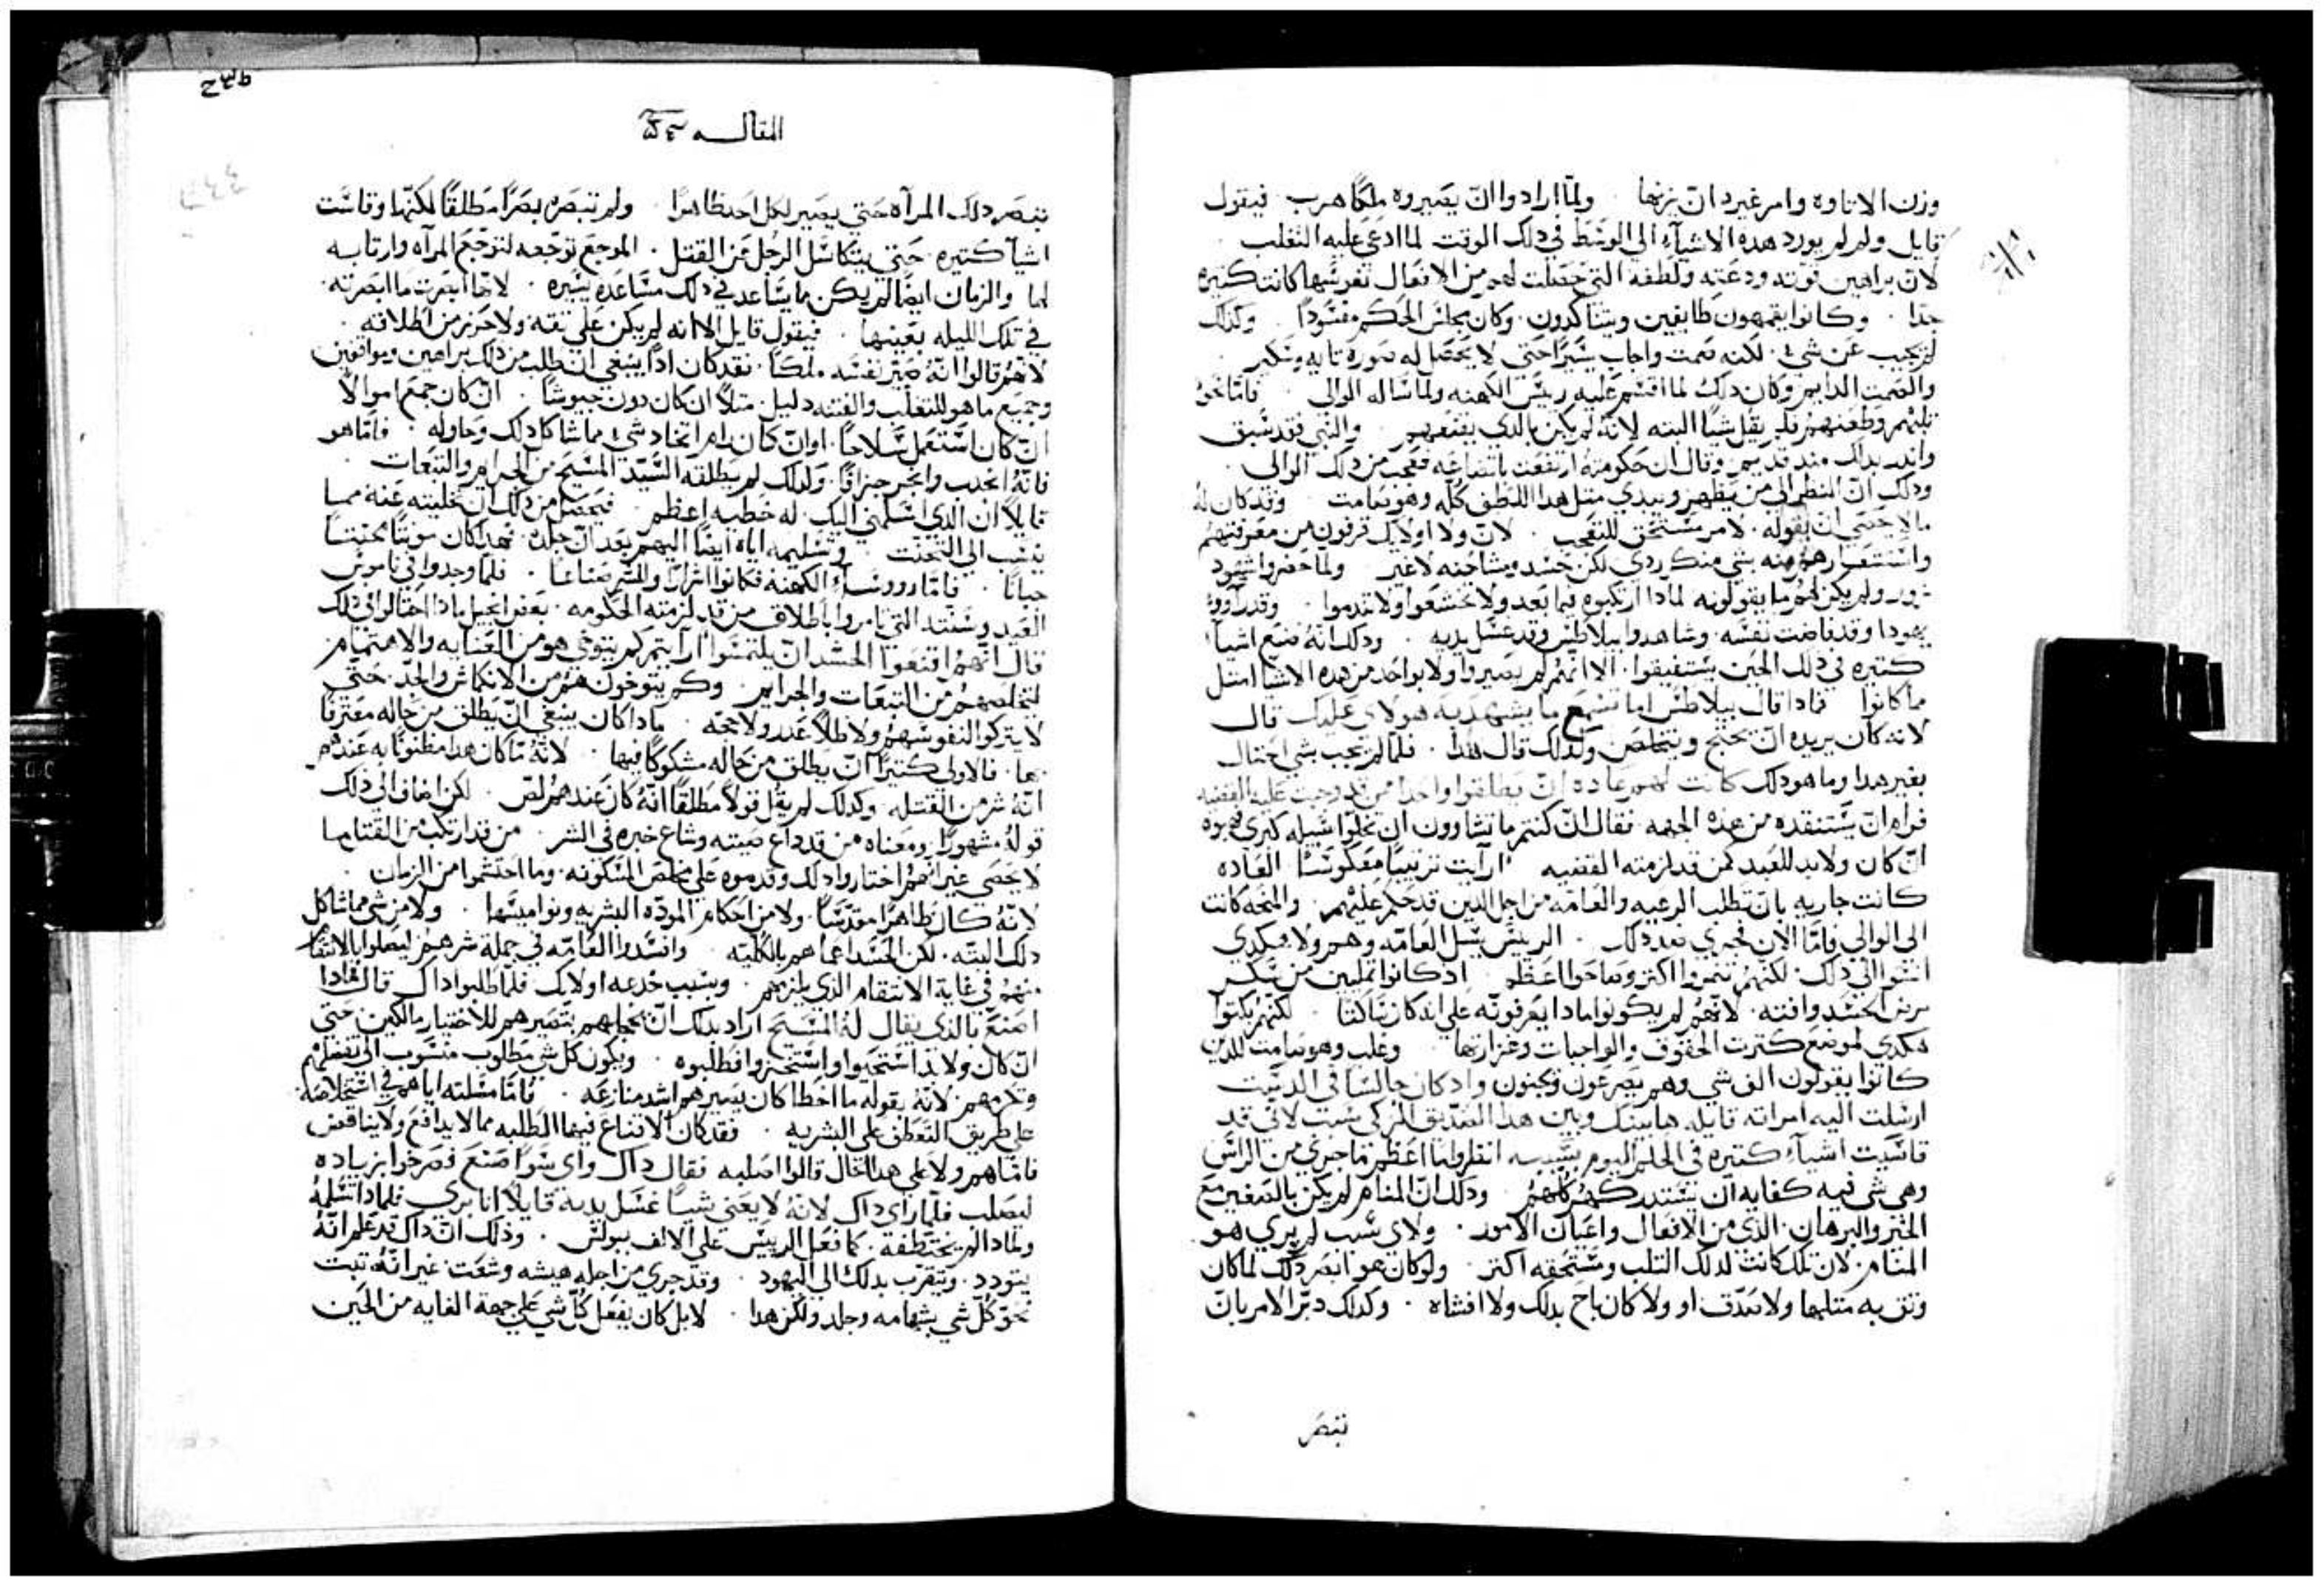 وزن الاتاوه وامر غيره ان يزنها ولما ارادوا ان يصيروه ملكًا هرب فيقول
قايل ولم لم يورد هده الاشيآء الى الوسَط في دلك الوقت لما ادعي عليه التغلب
لان براهين قوته ودعته ولطفه التي حصلت لهم من الافعال نفوسَها كانت كتيره
جدًا وكانوا يقمهون طايفين ويتناكدون وكان مجلس الحكم مفسودًا وكدلك
لم يجيب عن شيء لكنه صمت واجاب يسَيرًا حتي لا يحصل له صورة تايه ومتكبر
والصمت الدايم وكان دلك لما اقسم عليه ريسَ الكهنه ولما سَاله الوالي فامّا نحو
تلبهم وطعنهم فلم يقل شيًا البته لانه لم يكن بالدي يقنعهم والنبي فقد سَبق
واندر بدلك مند قديم وقال ان حكومته ارتفعت باتضاعه فعجب من دلك الوالي
ودلك ان النظر الي من يظهر ويبدي متل هدا اللطف كله وهو صامت وقد كان له
ما لا يحصَي ان يقوله لامر مسَتحق للتعجب لان ولا اوليك قرفوه من معرفتهم
واسَتشعارهم منه بشي منكر ردي لكن حسَد ومشاحنه لا غير ولما احضروا شهود
زور ولم يكن لهم ما يقولونه لمادا ارتكبوه فيما بعد ولا تخشعوا ولا تندموا وقد رآووا
يهودا وقد فاضت نفسَه وشاهدوا بيلاطسَ وقد غسَل يديه ودلك انه صنع اشيآء
كتيره في دلك الحين ليستفيقوا الا انهم لم يصيروا ولا بواحد من هده الاشيا امتل
ما كانوا فادا قال بيلاطسَ اما تسَمع ما يشهد به هولاي عليك قال
لانه كان يريده ان يحتج ويتخلص ولدلك قال هدا فلما لم يجب بشي احتال
بغير هدا وما هو دلك كانت لهم عاده ان يطلقوا واحدًا ممن قد وجبت عليه القضيه
فرام ان يسَتنقده من هده الجهه فقال ان كنتم ما تشاوون ان تخلوا سَبيله كبري فهبوه
ان كان ولا بد للعيد كمن قد لزمته القضيه ارآيت ترتيبًا معكوسًا العاده
كانت جاريه بان تطلب الرعيه والعامه من اجل الدين قد حكم عليهم والمنحه كانت
الى الوالي فامّا الان فجري ضد دلك الرييسَ يسَل العامه وهم ولا هكدي
انتنوا الى دلك لكنهم تنمروا اكتر وصاحوا اعظم اد كانوا تملين من سَكر
مرض الحسَد وافته لانهم لم يكونوا مادا يقرفونه علي انه كان سَاكتًا لكنهم بكتوا
هكدي لموضع كترت الحقوق والواجبات وغزارتها وغلب وهو صامت للدين
كانوا يقولون الف شي وهم يصرعون ويجنون واد كان جالسًا في الدسَت
ارسَلت اليه امراته قايله ما بينك وبين هدا الصديق المزكي سَبب لاني قد
قاسَيت اشيآء كتيره في الحلم اليوم بسَببه انظروا ما اعظم ما جري من الراسَ
وهي شي فيه كفايه ان يسَتدركهم كلهم ودلك ان المنام لم يكن بالصغير مع
الخبر والبرهان الدي من الافعال واعيان الامور ولاي سَبب لم يري هو
المنام لان تلك كانت لدلك القلب ومسَتحقه اكتر ولو كان هو ابصر دلك لما كان
وتق به متلها ولا صدّق او ولا كان باح بدلك ولا افشاه وكدلك دبر الامر بان
تبصر
المقاله
تبصَر دلك المرآه حتي يصير لكل احد ظاهرًا ولم تبصره بصرًا مطلقًا لكنها وقاسَت
اشيآ كتيره حتي يتكاسَل الرجل عن القتل الموجع توجعه لتوجع المرآه وارتابه
لها والزمان ايضًا لم يكن ما يسَاعد في دلك مسَاعده يسَيره لانها ابصرت ما ابصرته
في تلك الليله بعينها فيقول قايل الا انه لم يكن علي تقه ولا حرز من اطلاقه
لانهم قالوا انه صير نفسَه ملكًا فقد كان ادًا ينبغي ان نطلب من دلك براهين ومواقعين
وجميع ما هو للتغلب والفتنه دليل متلًا ان كان دون جيوشًا ان كان جمع اموالًا
ان كان اسَتعمل سَلاحًا او ان كان رام اتخاد شيء مما شاكل دلك وحاوله فامّا هو
فانه انجدب وانجر جزافًا ولدلك لم يطلقه السَيد المسَيح من الجرايم والتبعات
قايلًا ان الدي اسَلمني اليك له خطيه اعظم فيحصل من دلك ان تخليته عنه مما
ينسَب الي التخنت وتسَليمه اياه ايضًا اليهم بعد ان جلده فهدا كان مونتًا مخنتًا
جبانًا فامّا رووسَآ الكهنه فكانوا اشرارًا وللشر صناعًا فلما وجدوا في ناموسَ
العيد وسَنته التي تامر باطلاق من قد لزمته الحكومه بعض الحيل مادا احتالوا في دلك
قال انهم اقنعوا الحشد ان يلتمسَوا ارآيتم كم يتوخي هو من العنايه والاهتمام
لتخلصهم من التبعات والجرايم وكم يتوخون هم من الانكماش والجد حتي
لا يتركوا لنفوسَهم ولا ظلًا عدر ولا حجه مادا كان ينبغي ان يطلق من حاله معترفًا
بها فالاولي كتيرًا ان يطلق من حاله مشكوكًا فيها لانه ما كان هدا مظنونًا به عندهم
انه شر من القتله وكدلك لم يقل قولًا مطلقًا انه كان عندهم لص لكن اضاف الي دلك
قوله مشهورًا ومعناه من قد داع صيته وشاع خبره في الشر من قد ارتكب من القتل ما
لا يحصَي غير انهم اختاروا داك وقدموه علي مخلص المسَكونه وما احتشموا من الزمان
لانه كان طاهرًا مقدسًا ولا من احكام المودّه البشريه ونواميسَها ولا من شي مما شاكل
دلك البته لكن الحسَد اعماهم بالكليه وافسَدوا العامه في جملة شرهم ليصلوا بالانتقام
منهم في غاية الانتقام الدي يلزمهم وسَبب خدعه اوليك فلما طلبوا داك قال فمادا
اصنع بالدي يقال له المسَيح اراد بدلك ان يخجلهم بتصيرهم للاختيار مالكين حتي
ان كان ولا بد اسَتحيوا واسَتخزوا فطلبوه ويكون كل شي مطلوب منسَوب الى تفضلهم
وكرمهم لانه بقوله ما اخطا كان يصيرهم اشد منازعه فامّا مسَلته اياهم في اسَتخلاصه
علي طريق التعطف علي البشريه فقد كان الاقناع فيها والطلبه مما لا يدافع ولا يناقض
فامّا هم ولا علي هدا الحال قالوا اصلبه فقال داك واي سَوًا صنع فصرخوا بزياده
ليصلب فلما راي داك لانه لا يعني شيًا غسَل يديه قايلًا انا بري فلمادا تسَلمه
ولمادا لم تختطفه كما فعل الرييسَ علي الالف ببولسَ ودلك ان داك قد علم انه
يتودد ويتقرب بدلك الى اليهود وقد جري من اجله هيشه وشغت غير انه تبت
نحو كل شي بشهامه وجلد ولكن هدا لا بل كان يفعل كل شي علي جهة الغايه من الجبن